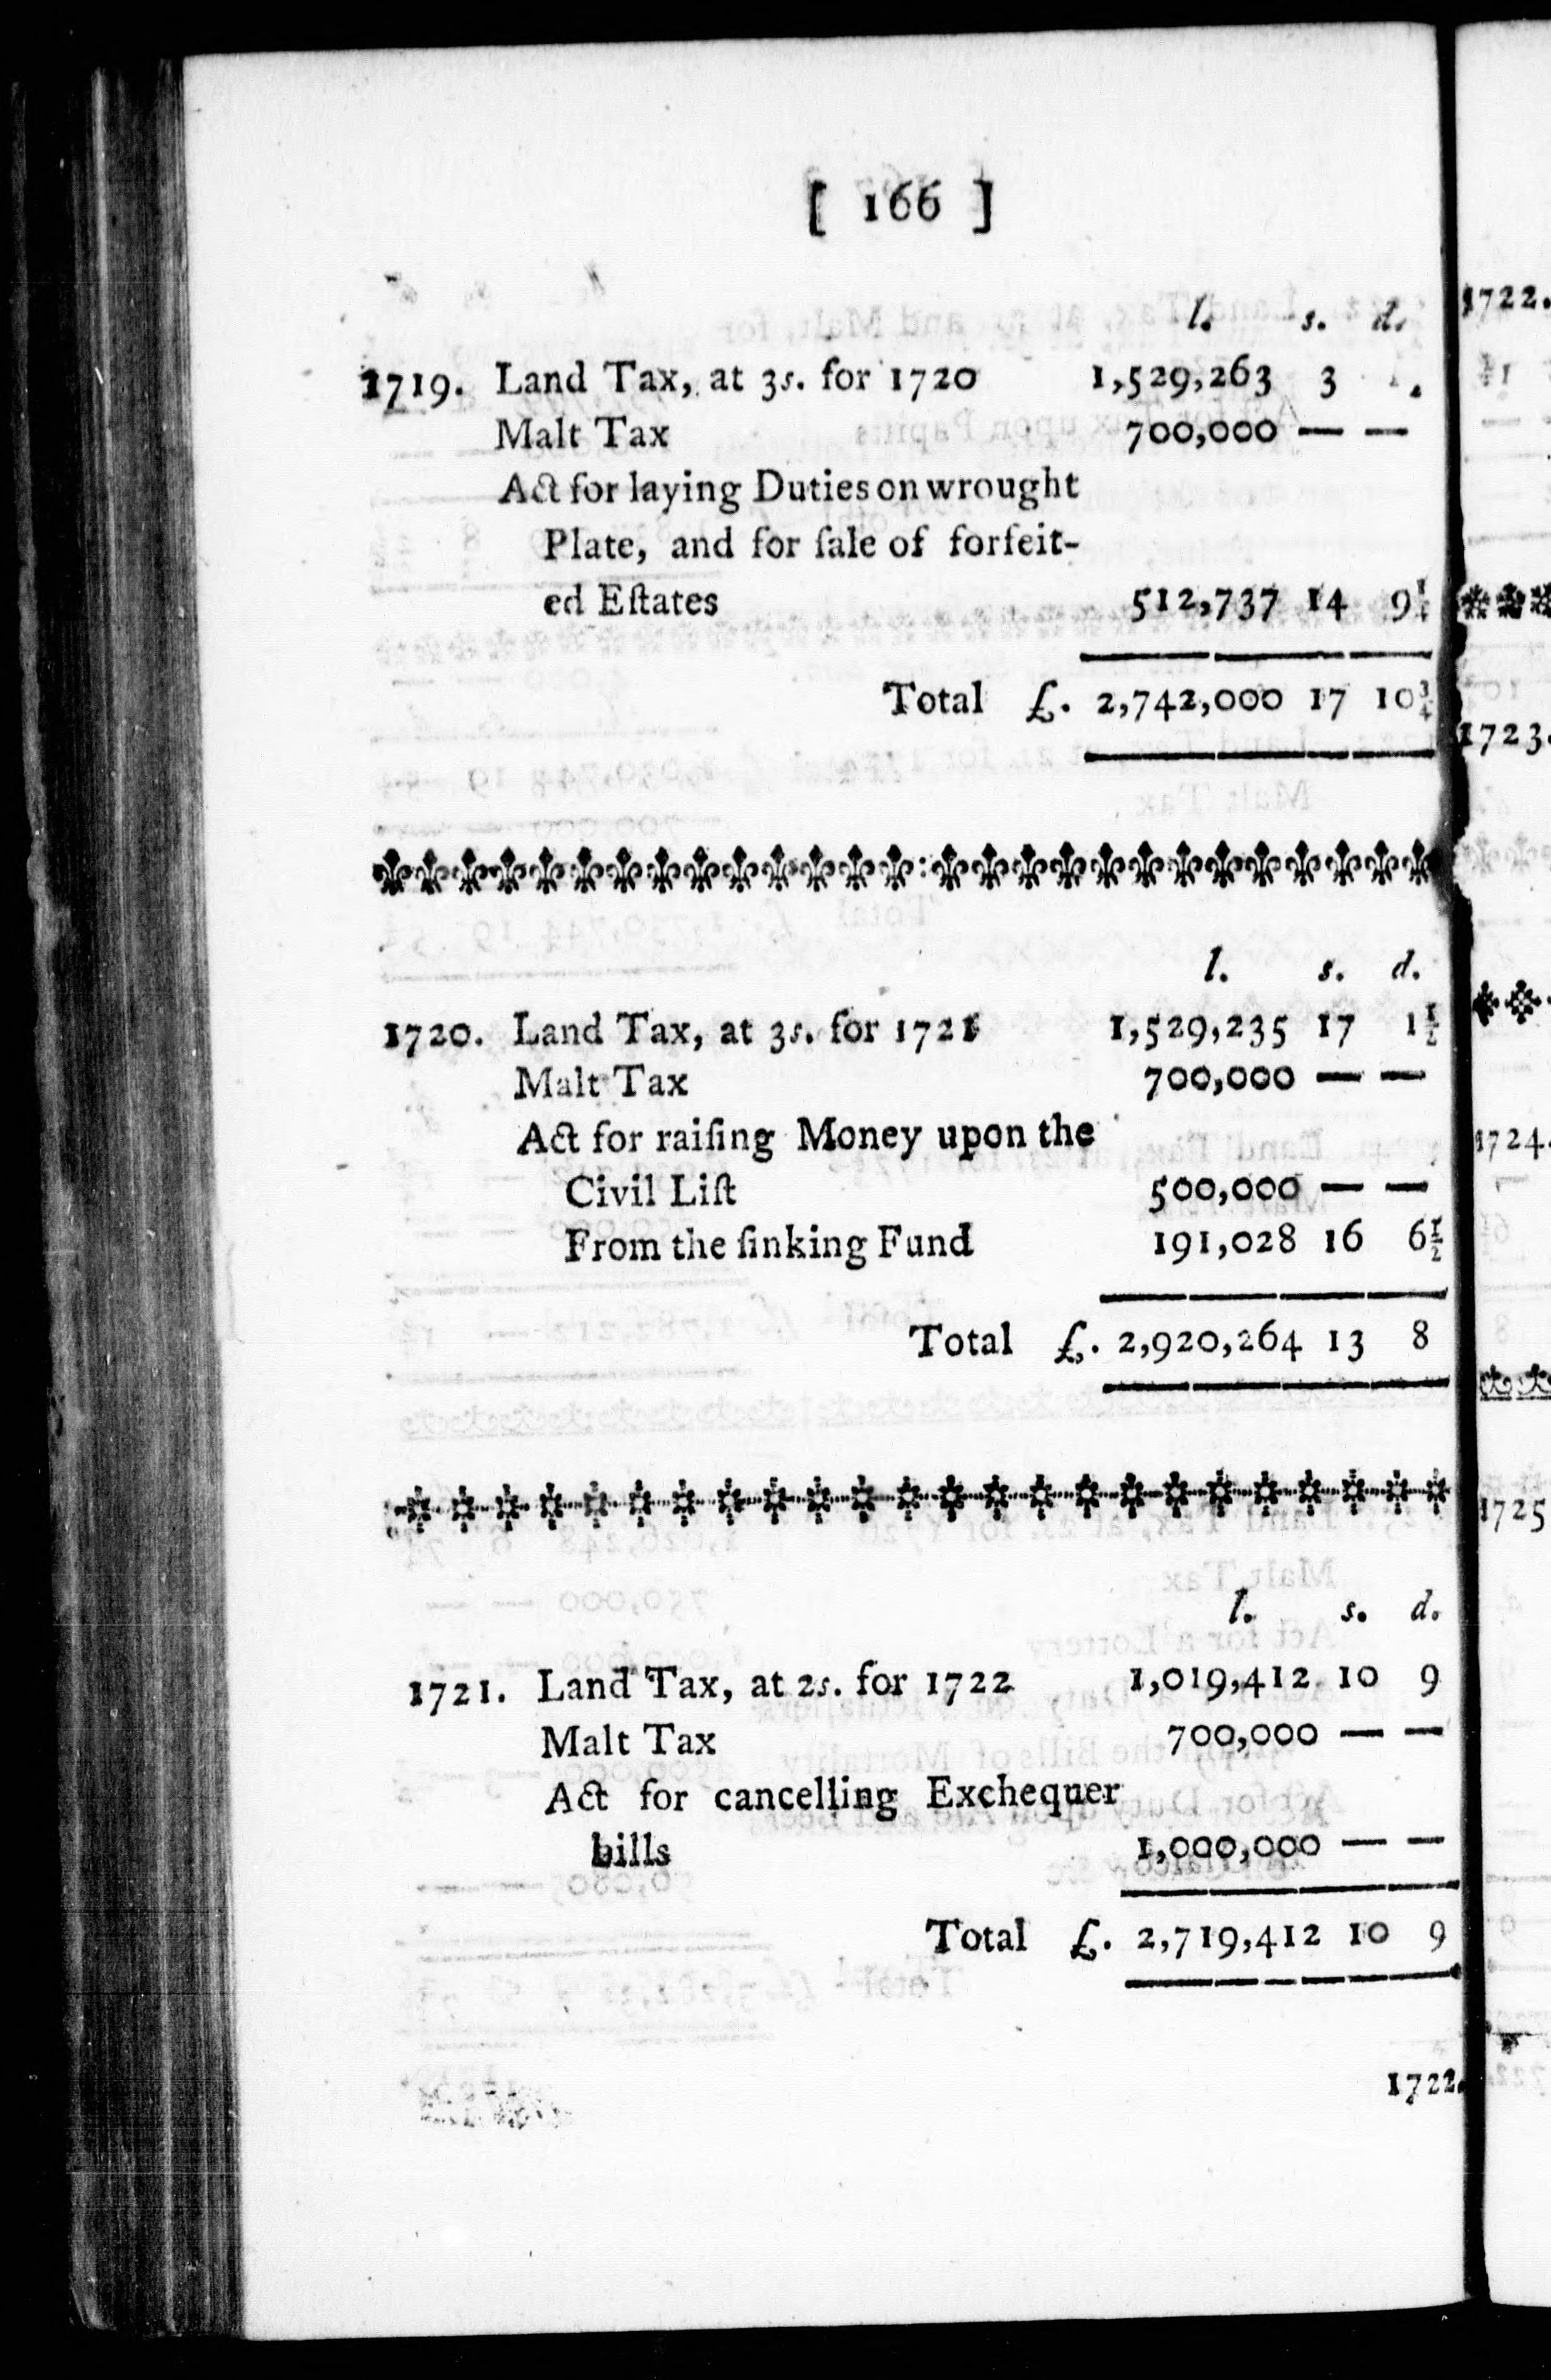 [ 166 ]
l. s. d.
1719. Land Tax, at 3s. for 1720 1,529,263 3
Malt Tax 700,000 — —
Act for laying Duties on wrought
Plate, and for ſale of forfeit-
ed Eſtates 512,737 14 9¼
Total £. 2,742,000 17 10¾
l. s. d.
1720. Land Tax, at 3s. for 1721 1,529,235 17 1½
Malt Tax 700,000 — —
Act for raiſing Money upon the
Civil Liſt 500,000 — —
From the ſinking Fund 191,028 16 6½
Total £. 2,920,264 13 8
l. s. d.
1721. Land Tax, at 2s. for 1722 1,019,412 10 9
Malt Tax 700,000 — —
Act for cancelling Exchequer
bills 1,000,000 — —
Total £. 2,719,412 10 9
1722.
1722.
1723.
1724.
1725